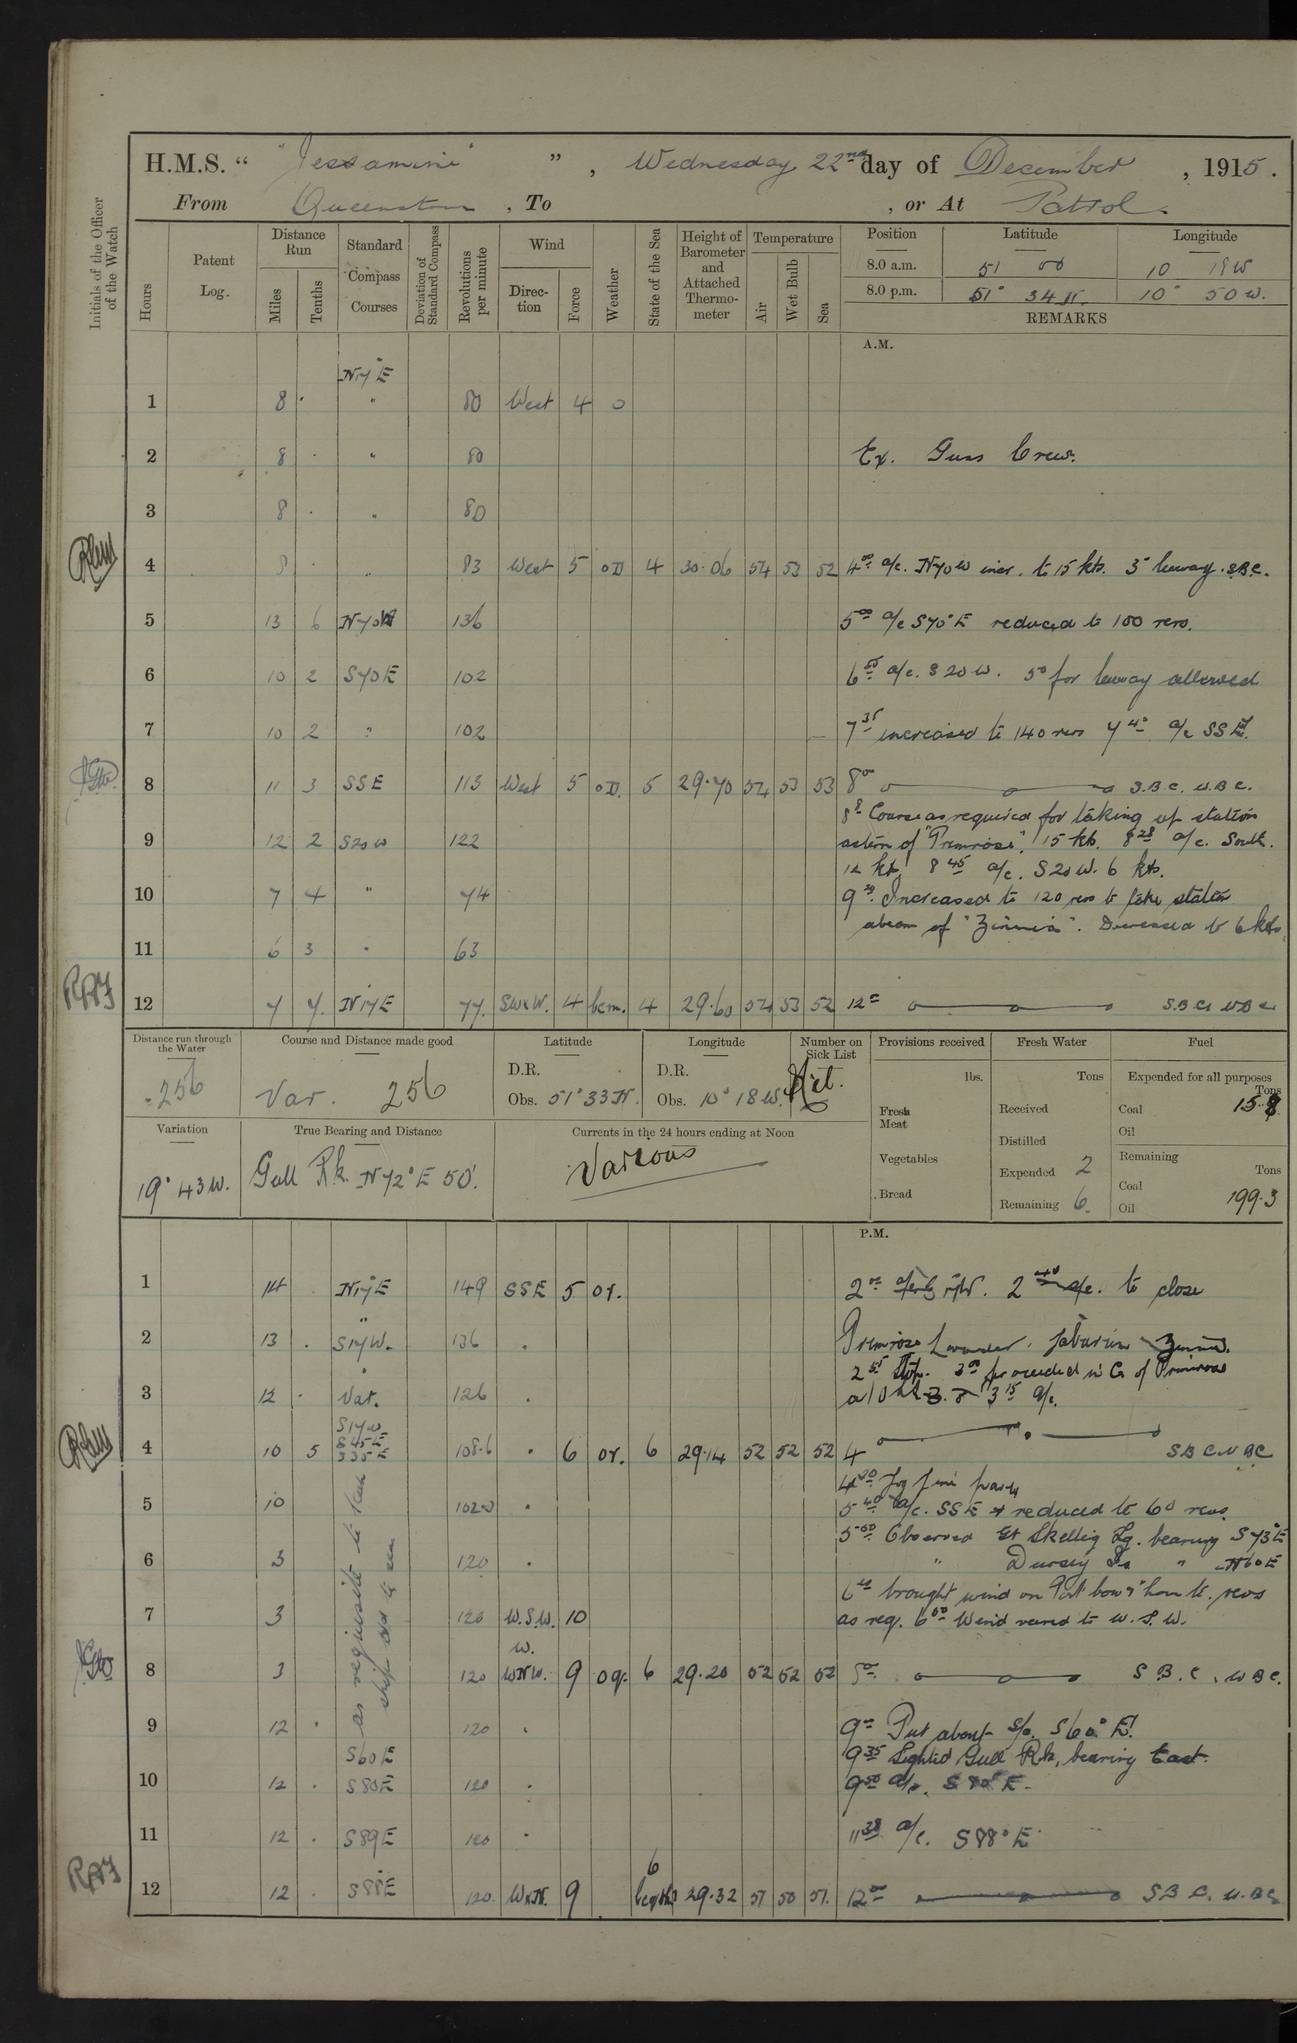 H.M.S. “ "Jessamine" ” , Wednesday 22nd day of December , 1915 .
From Queenstown , To , or At Patrol.
Initials of the Officer of the Watch
Hours
Patent Log.
Distance Run
Miles
Tenths
Standard Compass Courses
Deviation of Standard Compass
Revolutions per minute
Wind
Direction
Force
Weather
State of the Sea
Height of Barometer and Attached Thermometer
Temperature
Air
Wet Bulb
Sea
Position Latitude Longitude
8.0 a.m. 51 00 10 18 W
8.0 p.m. 51° 34 N. 10° 50 W.
REMARKS
A.M.
N17E
1 8 . " 80 West 4 o
2 8 . " 80 Ex. Guns Crews.
3 8 . " 80
4 8 . " 83 West 5 oD 4 30.06 54 53 52 4 00 a/c. N70W incr. to 15 kts. 5° leeway. S.B.C.
5 13 6 N70W 136 5 00 a/c S70°E reduced to 100 revs.
6 10 2 S70E 102 6 55 a/c. S20W. 5° for leeway allowed
7 10 2 " 102 7 35 increased to 140 revs 7 40 a/c SSE.
8 11 3 SSE 113 West 5 oD. 5 29.70 54 53 53 8 00 S.B.C. W.B.C.
8 8 Course as required for taking up station
9 12 2 S20W 122 astern of "Primrose". 15 kts. 8 28 a/c. South.
12 kts 8 45 a/c. S20W. 6 kts.
10 7 4 " 74 9 Increased to 120 revs to take station
abeam of "Zinnia". Decreased to 6 kts
11 6 3 " 63
RAJ
12 7 7. N17E 77. SWxW. 4 bcm. 4 29.60 54 53 52 12 S.B.C. W.B.C
Distance run through the Water
256
Course and Distance made good
Var. 256
Latitude
D.R.
Obs. 51° 33 N.
Longitude
D.R.
Obs. 10° 18 W.
Number on Sick List
Nil.
Provisions received
lbs.
Fresh Meat
Vegetables
Bread
Fresh Water
Tons
Received
Distilled
Expended 2
Remaining 6.
Fuel
Expended for all purposes
Tons
Coal 15.8
Oil
Remaining
Tons
Coal
Oil 199.3
Variation
19° 43 W.
True Bearing and Distance
Gull Rk. N72°E 50'.
Currents in the 24 hours ending at Noon
Various
P.M.
1 14 . N17E 149 SSE 5 or. 2 00 2 40 a/c. to close
2 13 . S17W. 136 . Primrose Lavender. Zinnia.
2 55 Stop. 3 00 proceeded in Co of Primrose
3 12 . Var. 126 . 3 15 a/c.
S17W
S45E
4 10 5 S35E 108.6 . 6 or. 6 29.14 52 52 52 4 S B C W BC
5 10 . 5 40 a/c. SSE & reduced to 60 revs.
5 50 Observed Gt Skellig Lg. bearing S73°E
6 3 120 . " Dursey Is " N60E
as requisite to keep ship
6 brought wind on Port bow revs
7 3 120 W.S.W. 10 as req. 6 Wind veered to W.S.W.
W.
8 3 120 WNW. 9 oq. 6 29.20 52 52 52 8 S B. C. W B C.
9 12 . 120 . 9 00 Put about S60°E.
S60E 9 35 Sighted Gull Rk, bearing East.
10 12 . S80E 120 . 9 50 a/c. S80°E.
11 12 . S89E 120 . 11 38 a/c. S88°E
RAJ
6
12 12 . S88E 120. WxN. 9 29.32 51 50 51. 12 00 S B C. W. B C